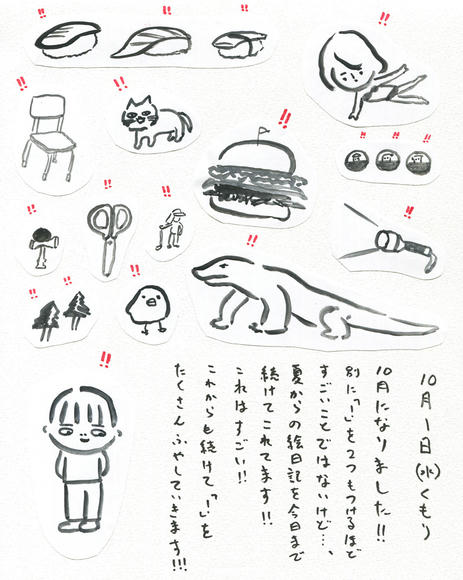 10月1日(水)くもり
10月になりました!!
別に「!」を2つもつけるほど
すごいことではないけど…、
夏からの絵日記を今日まで
続けてこれてます!!
これはすごい!!
これからも続けて「!」を
たくさんふやしていきます!!!